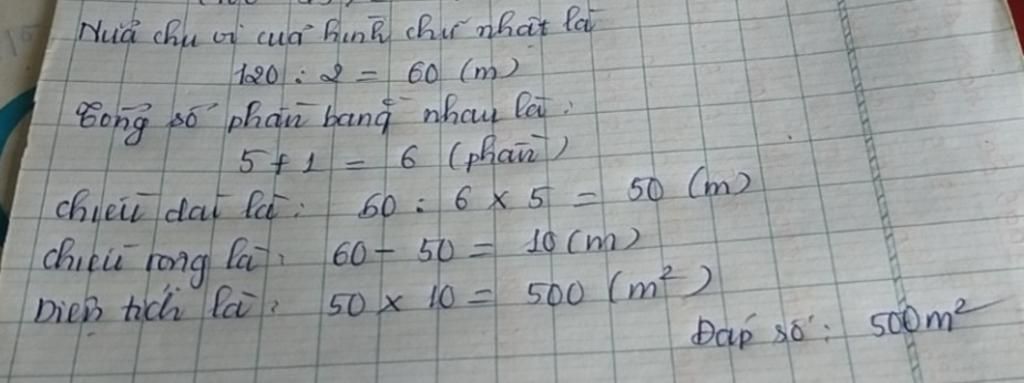 Nửa chu vi của hình chữ nhật là
120 : 2 = 60 (m)
Tổng số phần bằng nhau là :
5 + 1 = 6 (phần)
chiều dài là : 60 : 6 × 5 = 50 (m)
chiều rộng là : 60 - 50 = 10 (m)
Diện tích là : 50 × 10 = 500 (m²)
Đáp số : 500m²